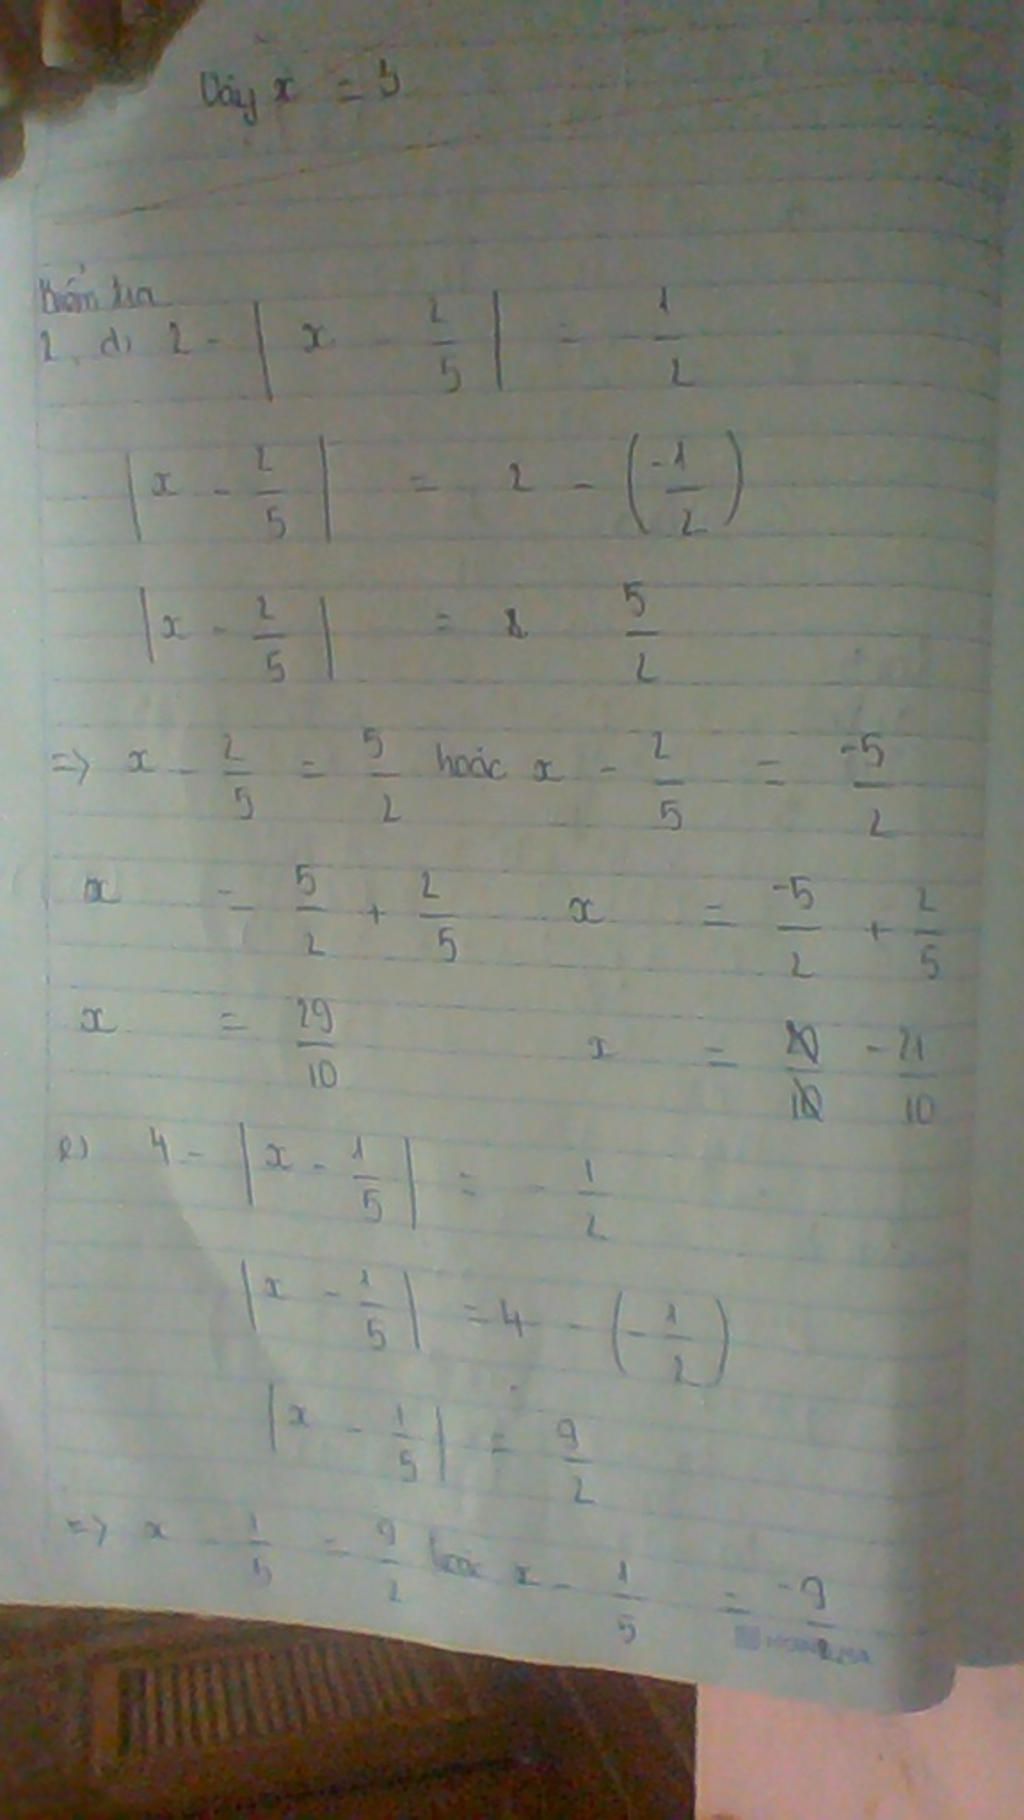 Vậy x = 3
Kiểm tra
2, d) 2 - | x - 2/5 | = - 1/2
| x - 2/5 | = 2 - ( -1/2 )
| x - 2/5 | = 5/2
=> x - 2/5 = 5/2 hoặc x - 2/5 = -5/2
x = 5/2 + 2/5 x = -5/2 + 2/5
x = 29/10 x = -21/10
e) 4 - | x - 1/5 | = - 1/2
| x - 1/5 | = 4 - ( - 1/2 )
| x - 1/5 | = 9/2
=> x - 1/5 = 9/2 hoặc x - 1/5 = -9/2